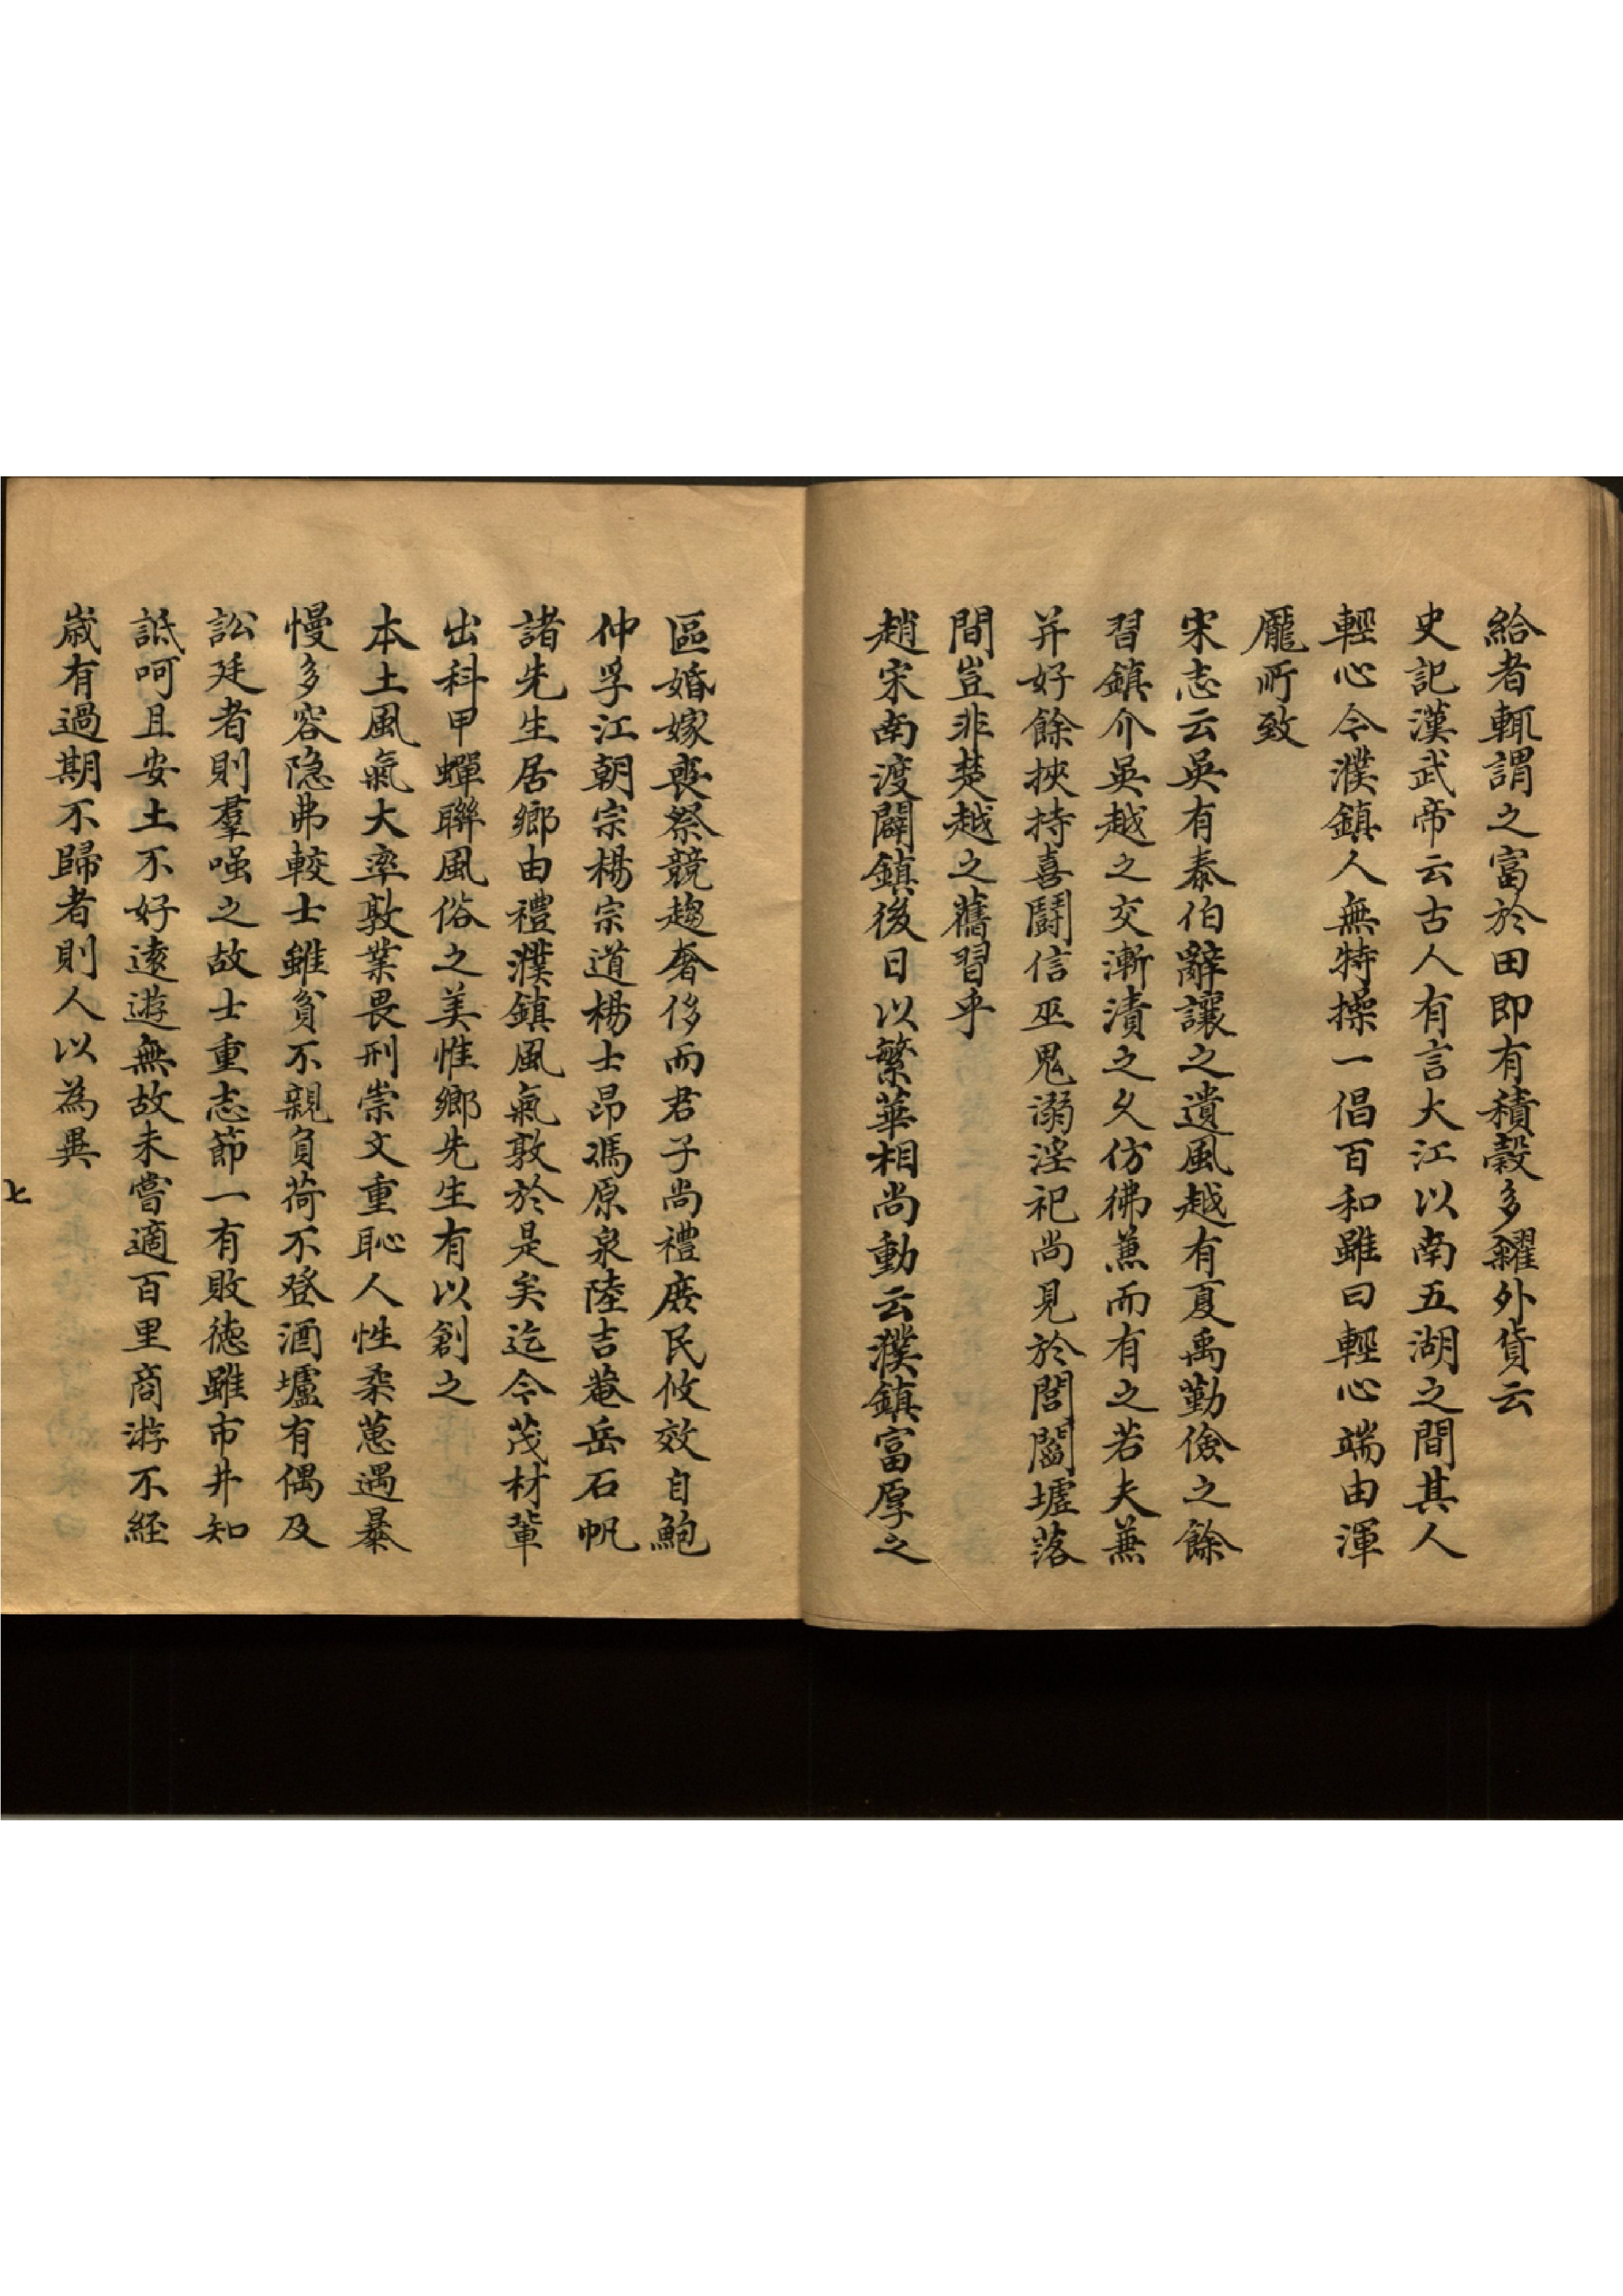 給者輒謂之富於田即有積穀多糴外貨云
史記漢武帝云古人有言大江以南五湖之間其人
輕心今濮鎮人無特操一倡百和雖曰輕心端由渾
龐所致
宋志云吳有泰伯辭讓之遺風越有夏禹勤儉之餘
習鎮介吳越之交漸漬之久仿彿蕙而有之若夫蕪
并好餘挾持喜鬪信巫鬼溺淫祀尚見於閭閻墟落
間豈非楚越之舊習乎
趙宋南渡闢鎮後日以繁華相尚動云濮鎮富厚之
區婚嫁喪祭競趨奢侈而君子尚禮庶民攸效自鮑
仲孚江朝宗楊宗道楊士昂馮原泉陸吉菴岳石帆
諸先生居鄉由禮濮鎮風氣敦於是矣迄今茂材輩
出科甲蟬聯風俗之美惟鄉先生有以創之
本土風氣大率敦業畏刑崇文重恥人性柔葸遇暴
慢多容隐弗較士雖貧不親負荷不登酒壚有偶及
訟廷者則羣嗤之故士重志節一有敗德雖市井知
詆呵且安土不好逺遊無故未嘗適百里商游不經
歳有過期不歸者則人以為異
七